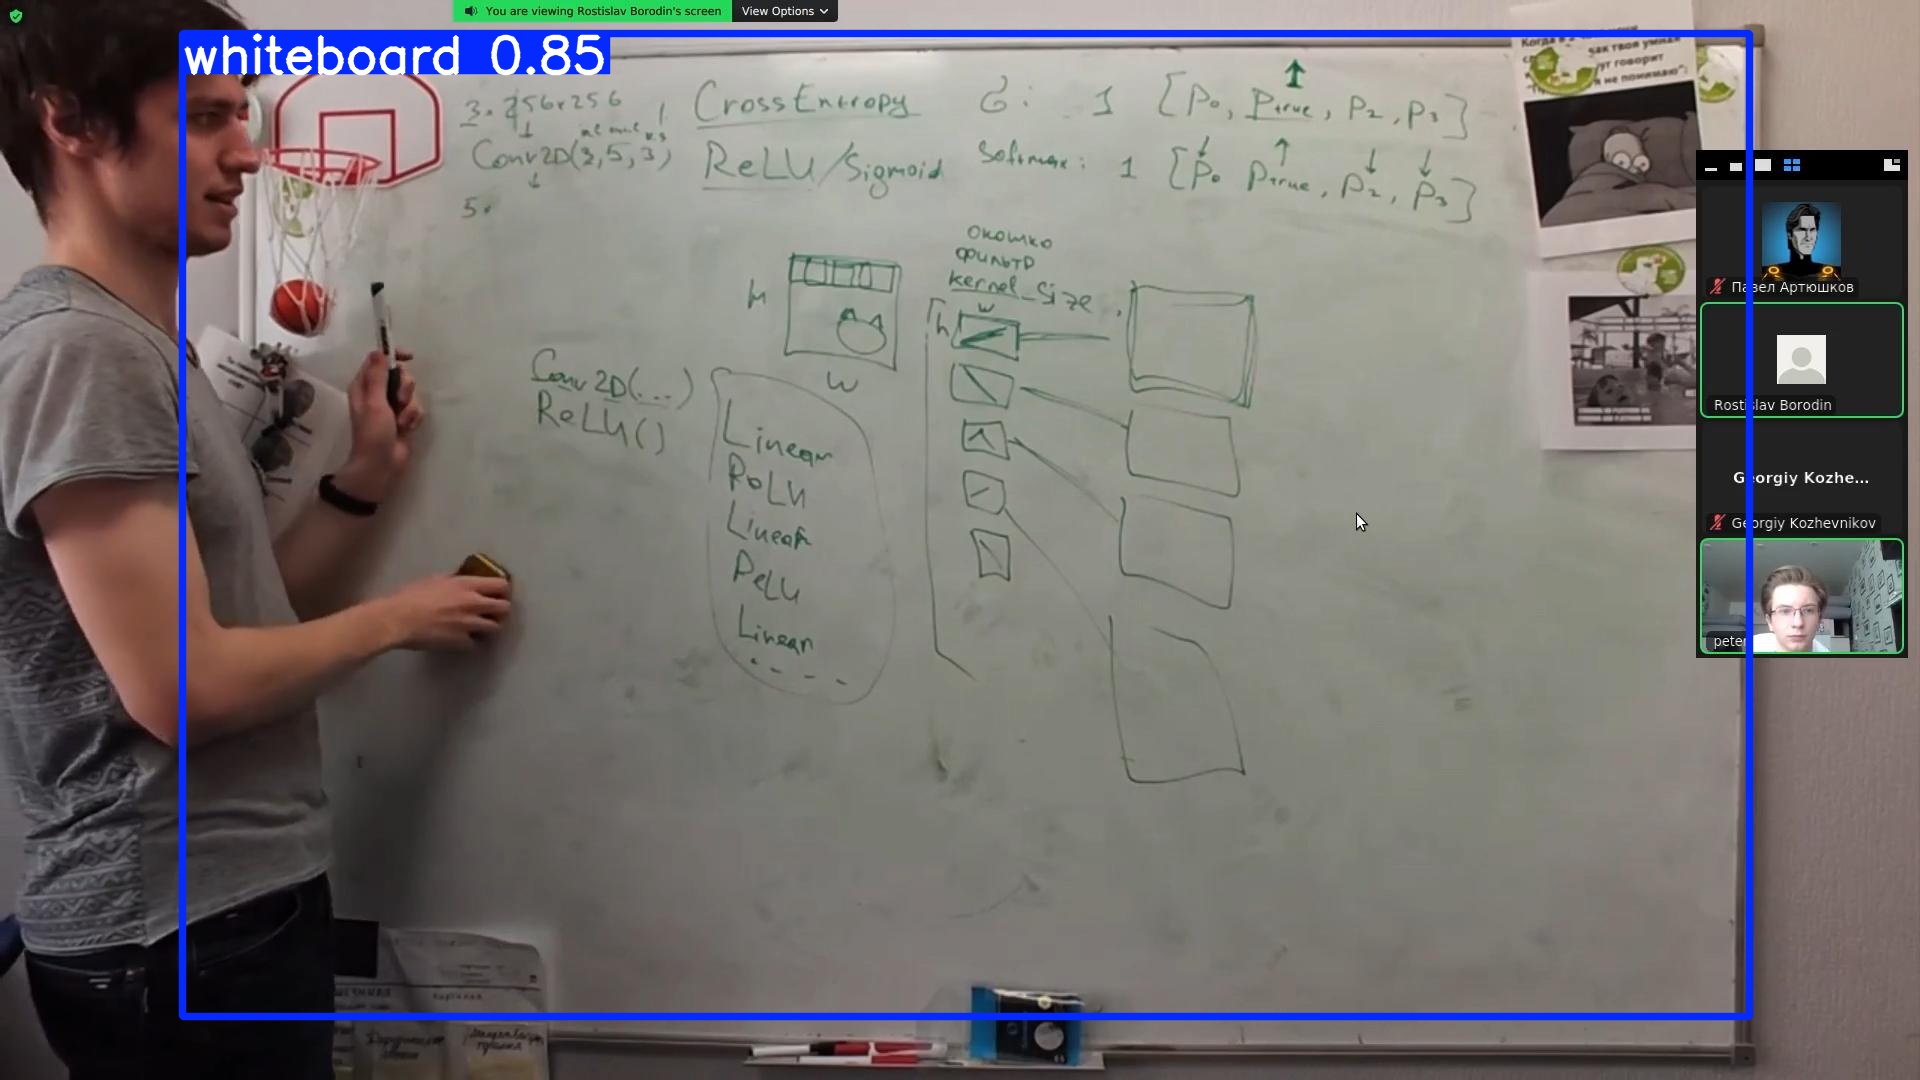 You are viewing Rostislav Borodin's screen
View Options
whiteboard 0.85
3 · 256x256
Conv2D(3, 5, 3)
5 ·
CrossEntropy
ReLU/Sigmoid
σ: 1 [P₀, Ptrue, P₂, P₃]
Softmax: 1 [P₀ Ptrue, P₂, P₃]
окошко
фильтр
kernel_size
H
W
w
h
Conv2D(...)
ReLU()
Linear
ReLU
Linear
ReLU
Linear
- - - -
как твоя умная
не понимаю":
Павел Артюшков
Rostislav Borodin
Georgiy Kozhe...
Georgiy Kozhevnikov
peter